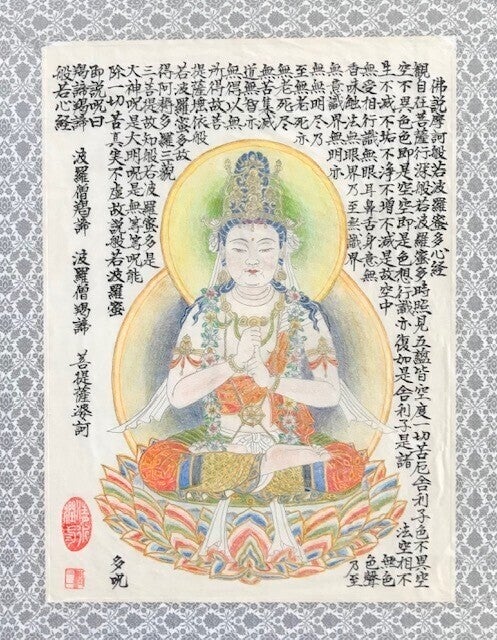 佛説摩訶般若波羅蜜多心経
観自在菩薩行深般若波羅蜜多時照見五蘊皆空度一切苦厄舎利子色不異空
空不異色色即是空空即是色想行識亦復如是舎利子是諸法空相不
生不滅不垢不浄不増不減是故空中無色
無受想行識無眼耳鼻舌身意無色聲
香味触法無眼界乃至無識界乃至
無意識界無無明亦
無無明尽乃
至無老死亦
無老死尽
無苦集滅
道無智亦
無得以無
所得故菩
提薩埵依般
若波羅蜜多故
得阿耨多羅三藐
三菩提故知般若波羅蜜多是
大神呪是大明呪是無等等呪能
除一切苦真実不虚故説般若波羅蜜多呪
即説呪曰
羯諦羯諦 波羅僧羯諦 波羅僧羯諦 菩提薩婆訶
般若心経